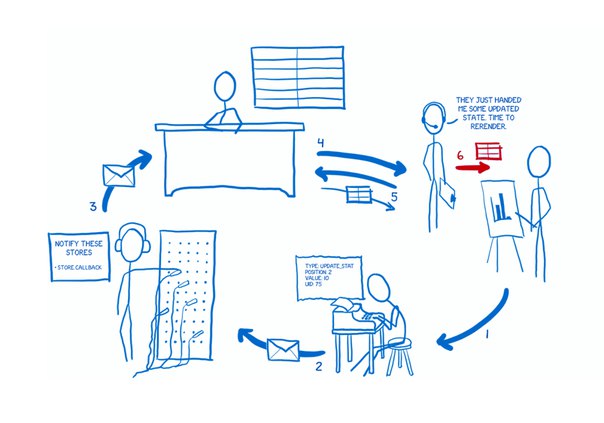 THEY JUST HANDED
ME SOME UPDATED
STATE. TIME TO
RERENDER.
4
6
5
3
NOTIFY THESE
STORES
• STORE.CALLBACK
TYPE: UPDATE_STAT
POSITION: 2
VALUE: 10
UID 75
1
2